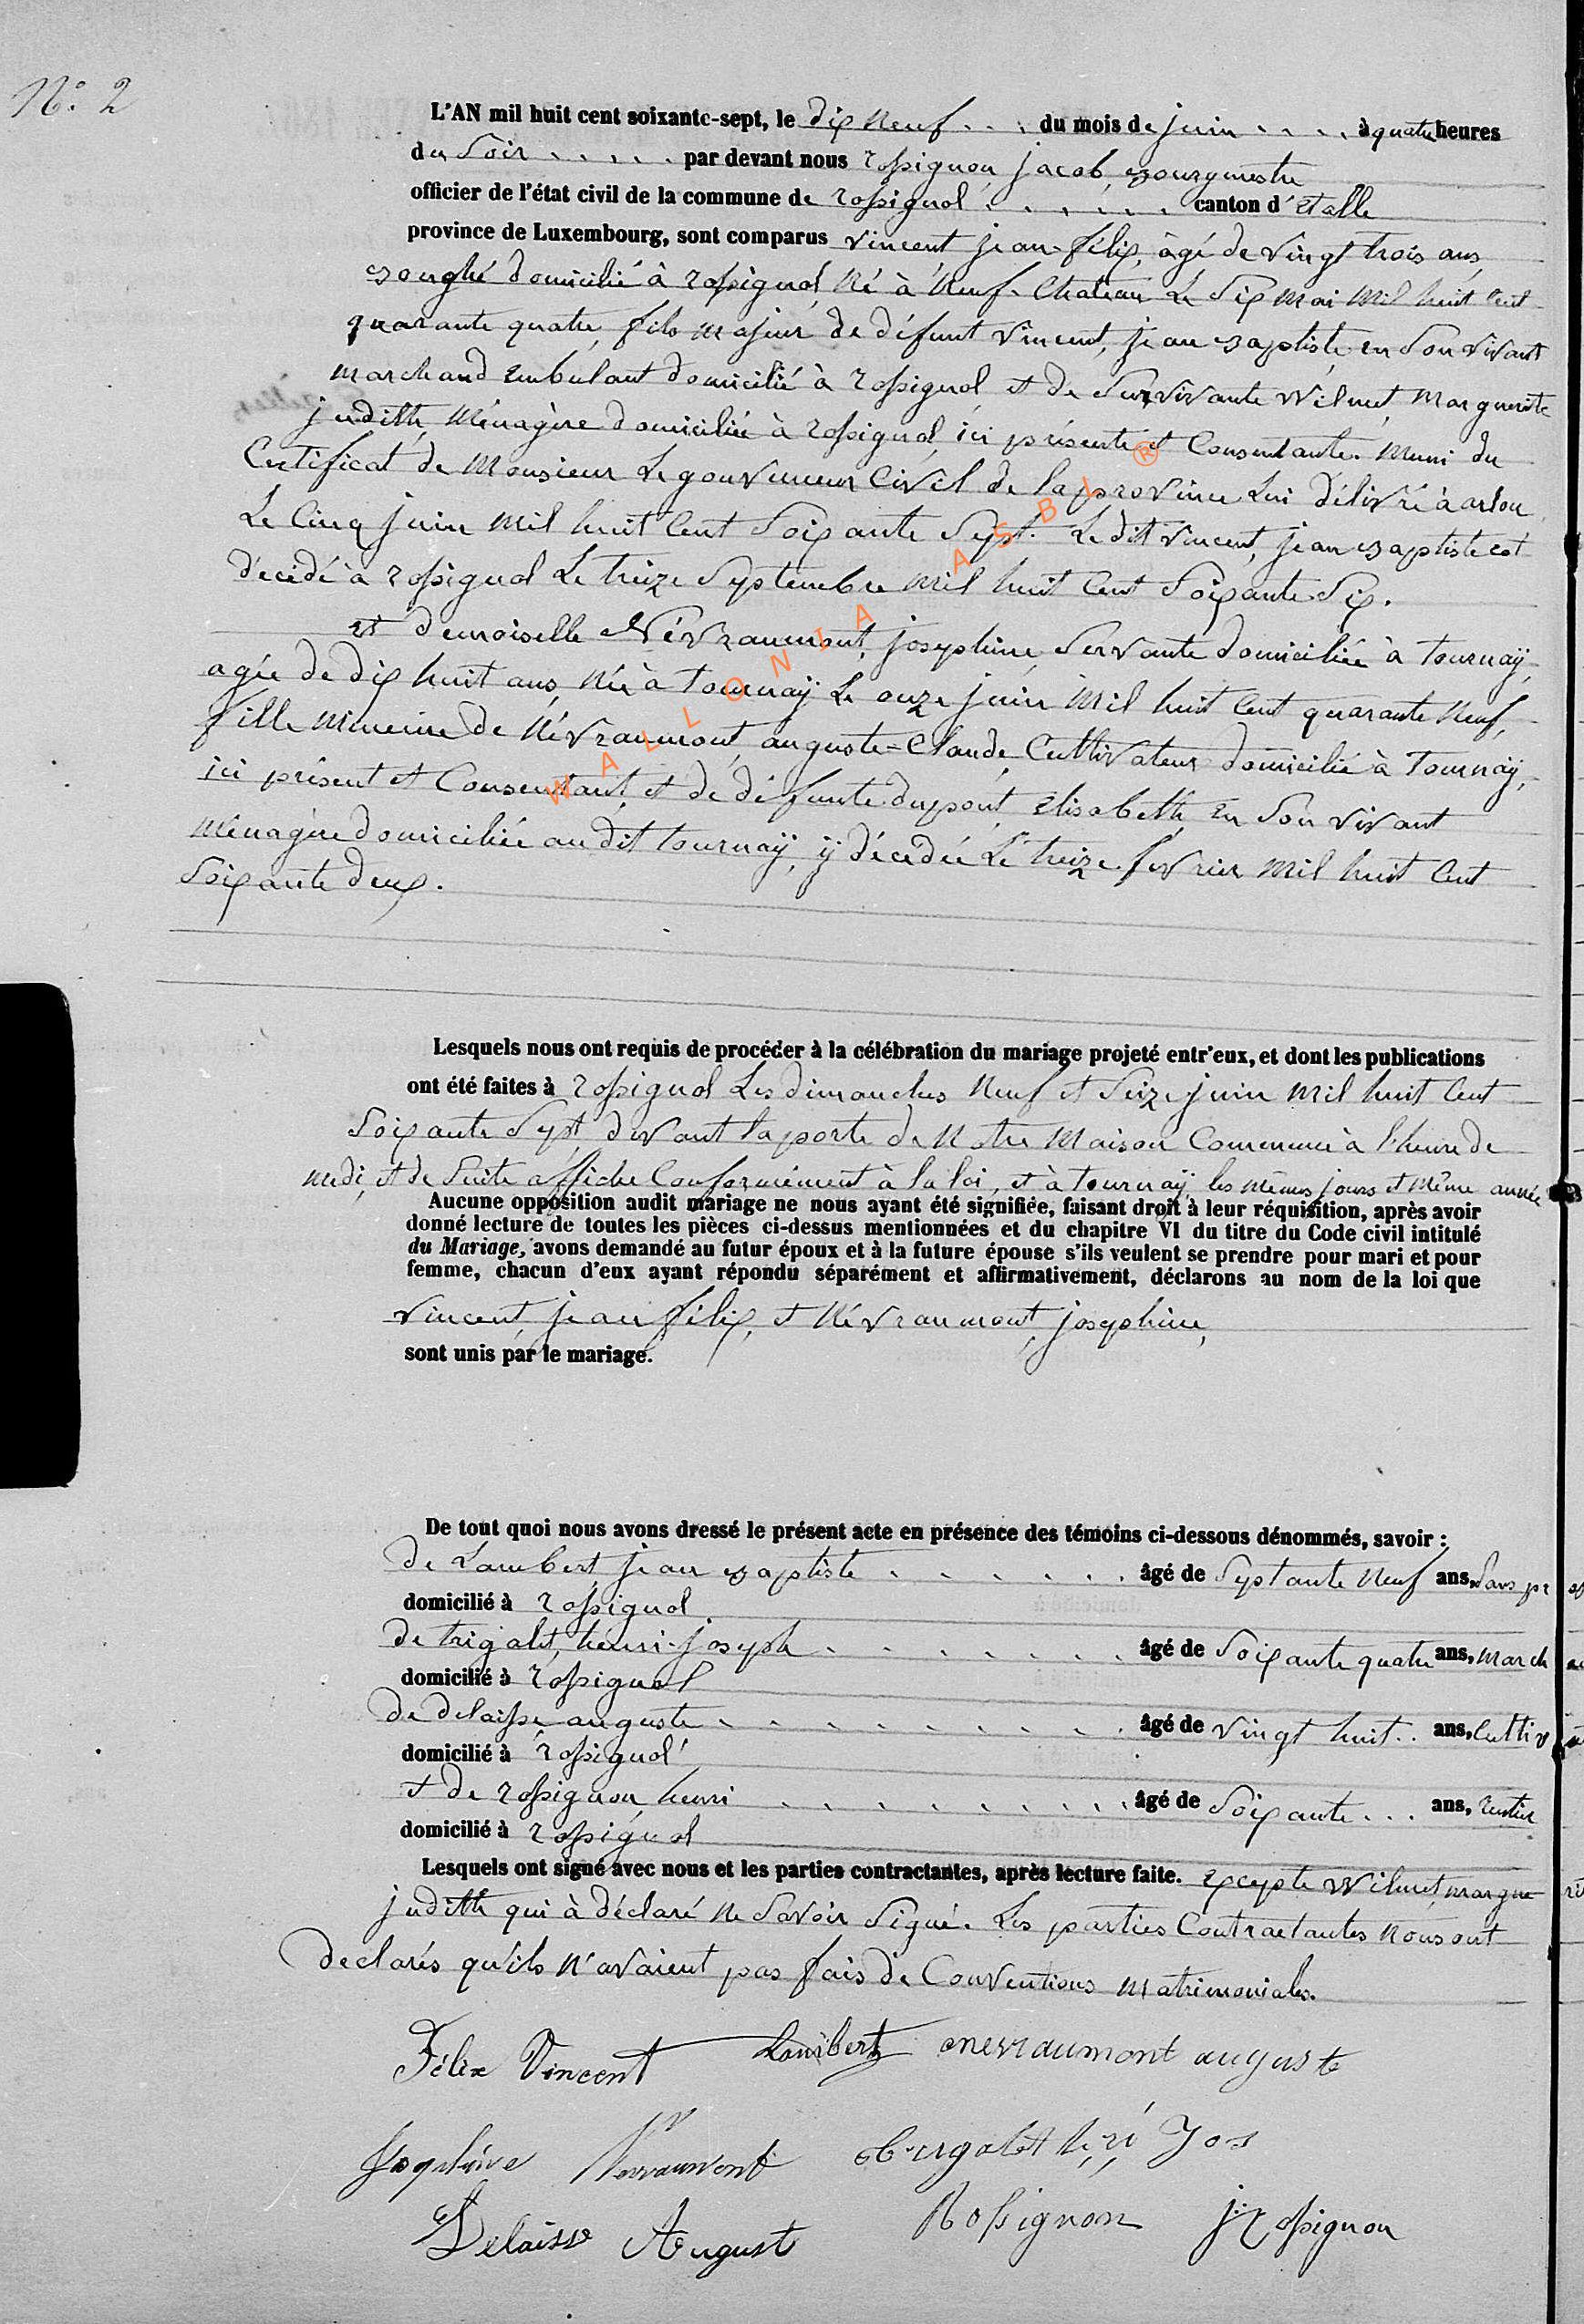 N° 2
L'AN mil huit cent soixante-sept, le dix neuf . . . du mois de juin . . . . à quatre heures
du Soir . . . . . par devant nous rossignon, jacob, Bourgmestre
officier de l'état civil de la commune de rossignol . . . . . . canton d'Etalle
province de Luxembourg, sont comparus Vincent, jean-félix, âgé de vingt trois ans,
domicilié à rossignol, Né à Neuf-Chateau Le Six Mai Mil huit Cent
quarante quatre, fils majeur de défunt Vincent, jean Baptiste, en Son vivant
Marchand Embulant domicilié à rossignol et de Survivante Wilmet, Marguerite
judith, Ménagère domiciliée à rossignol, ici présente et Consentante. Muni du
Certificat de Monsieur Le gouverneur Civil de la province Lui délivré à arlon
Le Cinq juin Mil huit Cent Soixante Sept. Le dit Vincent, jean Baptiste est
décédé à rossignol Le treize Septembre Mil huit Cent Soixante Six.
et demoiselle Névraumont, joséphine, Servante domiciliée à tournaÿ,
agée de dix huit ans, Née à tournaÿ Le onze juin Mil huit Cent quarante Neuf,
fille Mineure de Névraumont, auguste-Claude, Cultivateur domicilié à Tournaÿ,
ici présent et Consentant, et de défunte dupont, Elisabeth, en Son vivant
Ménagère domiciliée au dit tournaÿ, ÿ décédée Le treize fevrier Mil huit Cent
Soixante deux.
WALLONIA ASBL ®
Lesquels nous ont requis de procéder à la célébration du mariage projeté entr'eux, et dont les publications
ont été faites à rossignol Les dimanches Neuf et Seize juin Mil huit Cent
Soixante Sept devant la porte de Notre Maison Commune à l'heure de
Midi, et de Suite affiché Conformément à la loi, et à tournaÿ, les mêmes jours et même année
Aucune opposition audit mariage ne nous ayant été signifiée, faisant droit à leur réquisition, après avoir
donné lecture de toutes les pièces ci-dessus mentionnées et du chapitre VI du titre du Code civil intitulé
du Mariage, avons demandé au futur époux et à la future épouse s'ils veulent se prendre pour mari et pour
femme, chacun d'eux ayant répondu séparément et affirmativement, déclarons au nom de la loi que
Vincent, jean félix, et Névraumont, joséphine,
sont unis par le mariage.
De tout quoi nous avons dressé le présent acte en présence des témoins ci-dessous dénommés, savoir :
de Lambert, jean Baptiste . . . . . . âgé de Septante Neuf ans, Sans pr
domicilié à rossignol
de trigalet, henri-joseph . . . . . . . âgé de Soixante quatre ans, march
domicilié à rossignol
de delaisse, auguste . . . . . . . . . âgé de vingt huit . . ans, Cultiv
domicilié à rossignol
et de rossignon, henri . . . . . . . . âgé de Soixante . . . ans, rentier
domicilié à rossignol
Lesquels ont signé avec nous et les parties contractantes, après lecture faite. Excepte Wilmet, Margue
judith qui à déclaré Ne Savoir Signé. Les parties Contractantes Nous ont
declarés qu'ils N'avaient pas fais de Conventions Matrimoniales.
Félix Vincent Lambert nevraumont auguste
Josephine Nevraumont
Delaisse August Rossignon J. Rossignon